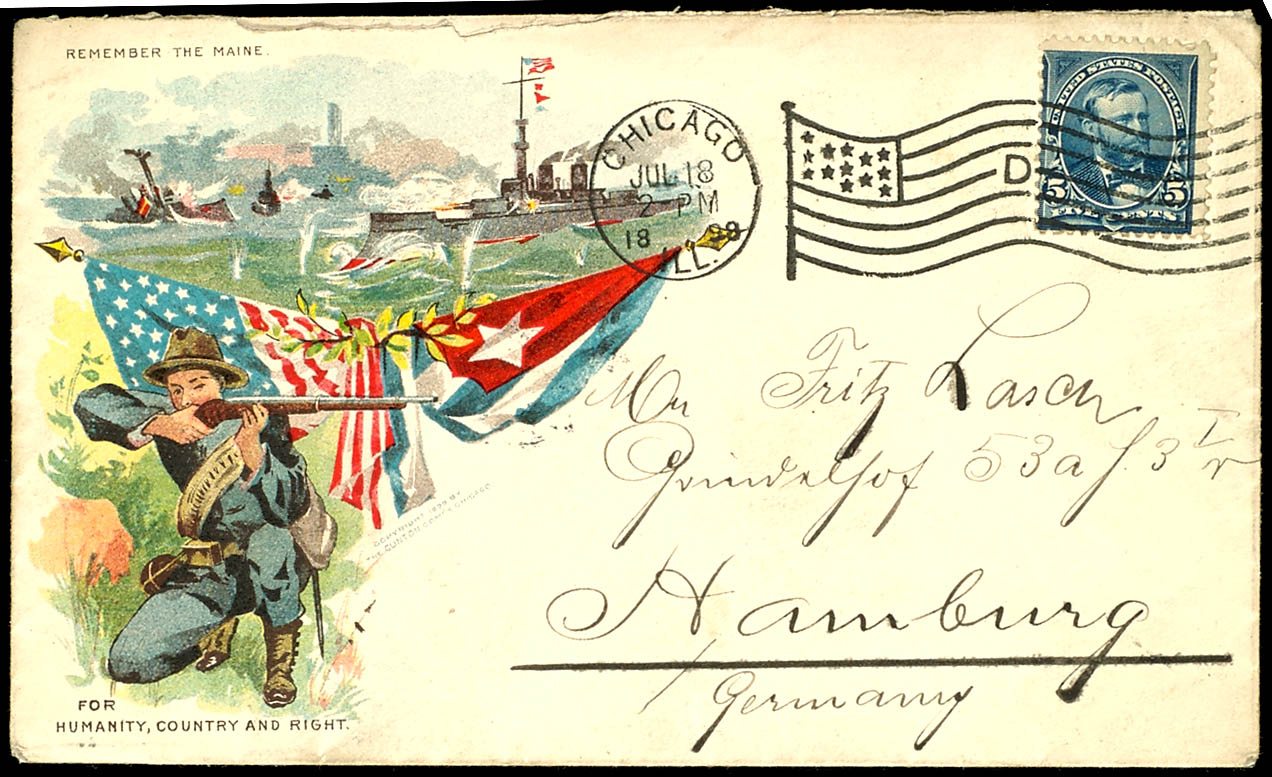 REMEMBER THE MAINE.
CHICAGO
JUL 18
2 PM
18 98
ILL.
D
UNITED STATES POSTAGE
5 5
FIVE CENTS
Mr Fritz Lasch
Grindelhof 53a
Hamburg
Germany
COPYRIGHT 1898 BY
THE CLINTON COMPY CHICAGO
FOR
HUMANITY, COUNTRY AND RIGHT.